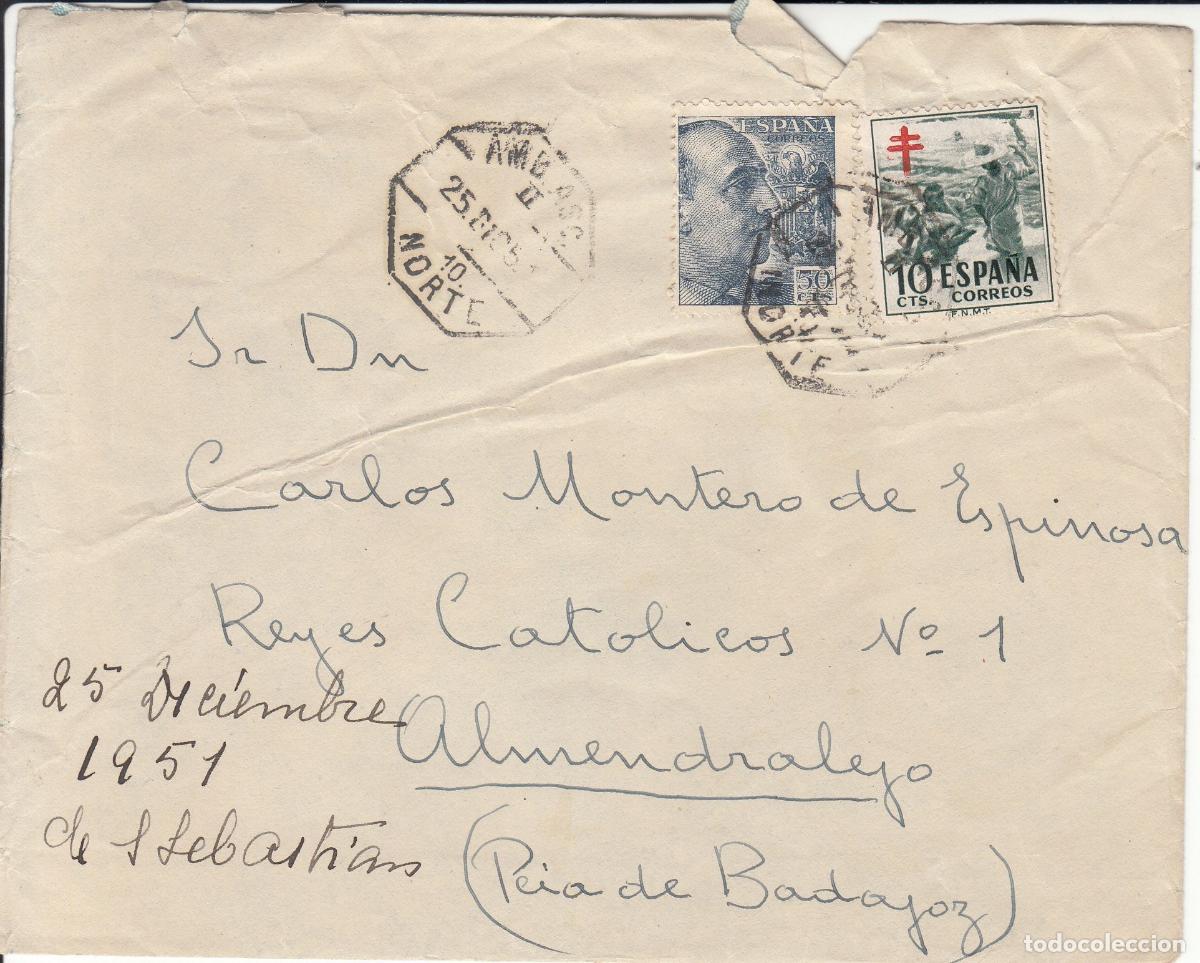 AMB. ASC
II
25.DIC.5
10
NORTE
ESPAÑA
CORREOS
50
CTS
10 ESPAÑA
CTS. CORREOS
F.N.M.T.
NORTE
Sr Dn
Carlos Montero de Espinosa
Reyes Catolicos Nº 1
Almendralejo
(Pcia de Badajoz)
25 Diciembre
1951
de S Sebastian
todocoleccion